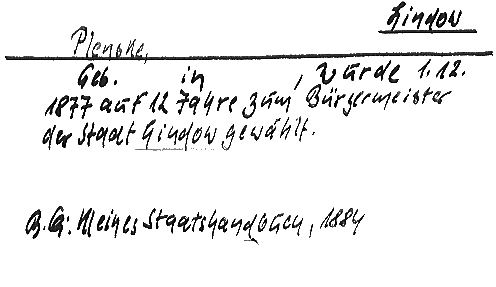 Lindow
Plenske,
Geb. in , wurde 1.12.
1877 auf 12 Jahre zum Bürgermeister
der Stadt Lindow gewählt.
Kleines Staatshandbuch, 1884